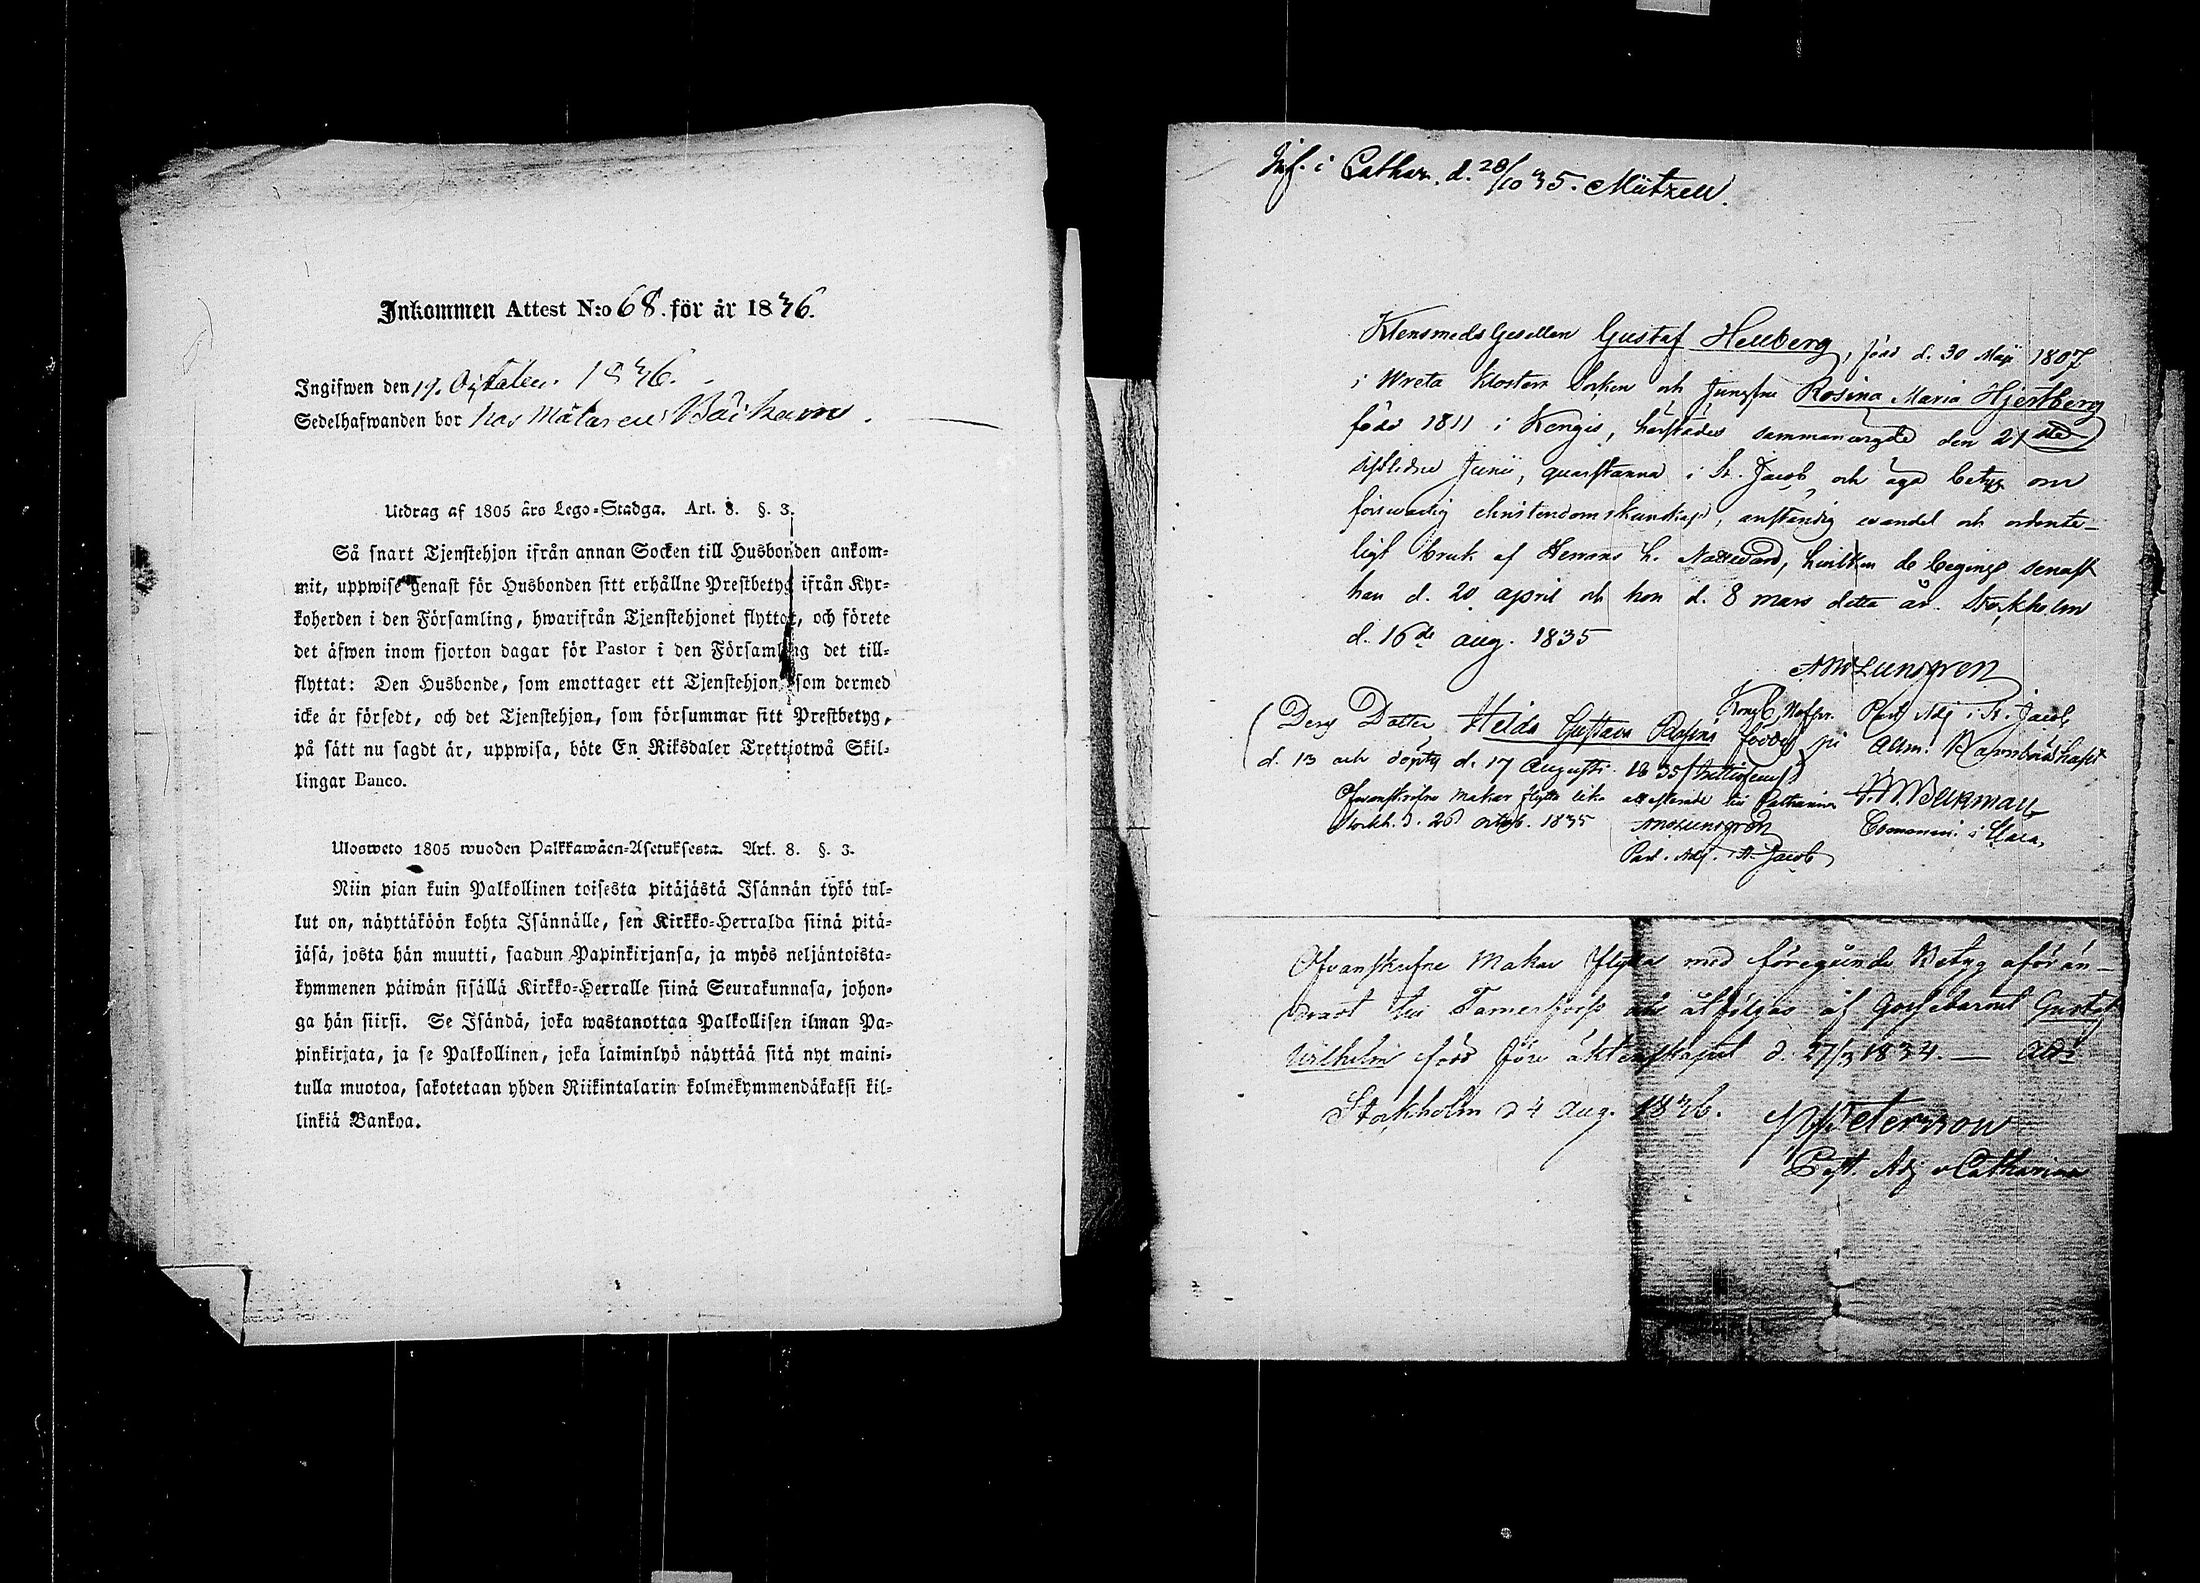 Inkommen Attest N:o 68. för år 1836.
Ingifwen den 19. October 1836.
Sedelhafwanden bor hos Målaren Bäckman.
Utdrag af 1805 års Lego-Stadga. Art. 8. §. 3.
Så snart Tjenstehjon ifrån annan Socken till Husbonden ankom-
mit, uppwise genast för Husbonden sitt erhållne Prestbetyg ifrån Kyr-
koherden i den Församling, hwarifrån Tjenstehjonet flyttat, och förete
det äfwen inom fjorton dagar för Pastor i den Församling det till-
flyttat: Den Husbonde, som emottager ett Tjenstehjon, som dermed
icke är försedt, och det Tjenstehjon, som försummar sitt Prestbetyg,
på sätt nu sagdt är, uppwisa, böte En Riksdaler Trettjotwå Skil-
lingar Banco.
Ulosweto 1805 wuoden Palkkawäen-Asetuksesta. Art. 8. §. 3.
Niin pian kuin Palkollinen toisesta pitäjästä Isännän tykö tul-
lut on, näyttäköön kohta Isännälle, sen Kirkko-Herralda siinä pitä-
jäsä, josta hän muutti, saadun Papinkirjansa, ja myös neljäntoista-
kymmenen päiwän sisällä Kirkko-Herralle siinä Seurakunnasa, johon-
ga hän siirsi. Se Isändä, joka wastanottaa Palkollisen ilman Pa-
pinkirjata, ja se Palkollinen, joka laiminlyö näyttää sitä nyt maini-
tulla muotoa, sakotetaan yhden Riikintalarin kolmekymmendäkaksi kil-
linkiä Bankoa.
Inf. i Cathar. d. 28/10 35. Mützell.
Klensmeds Gesellen Gustaf Hellberg, född d. 30 Maji 1807
i Wreta Klosters Socken och Jungfru Rosina Maria Hjertberg
född 1811 i Kengis, härstädes sammanvigde den 21 sta
sistlidne Junii, quarstanna i St. Jacob och äga betyg om
förswarlig christendomskundskap, anständig wandel och ordente-
ligt bruk af Herrans h. Nattward, hvilken de begingo senast
han d. 20 april och hon d. 8 mars detta år. Stockholm
d. 16de aug. 1835
Lundgren
Kongl. Hofpr. Past. Adj. i St. Jacob
(Deras Dotter Gustava föddes på Allm. Barnbördshuset
d. 13 och döptes d. 17 Augusti 1835
Ofvanskrifne Makar flytta till Catharina
Stockh. d. 26 octob. 1835 Lundgren
Comminis. i Clara
Past. Adj. St. Jacob
Ofvanskrefne Makar flytta med föregående Betyg oförän-
dradt till Tamerforss och åtföljas af Gossebarnet Gustaf
Wilhelm född före äktenskapet d. 27/3 1834. —
Stockholm d 4 Aug. 1836.
Petersson
Past. Adj. i Catharina